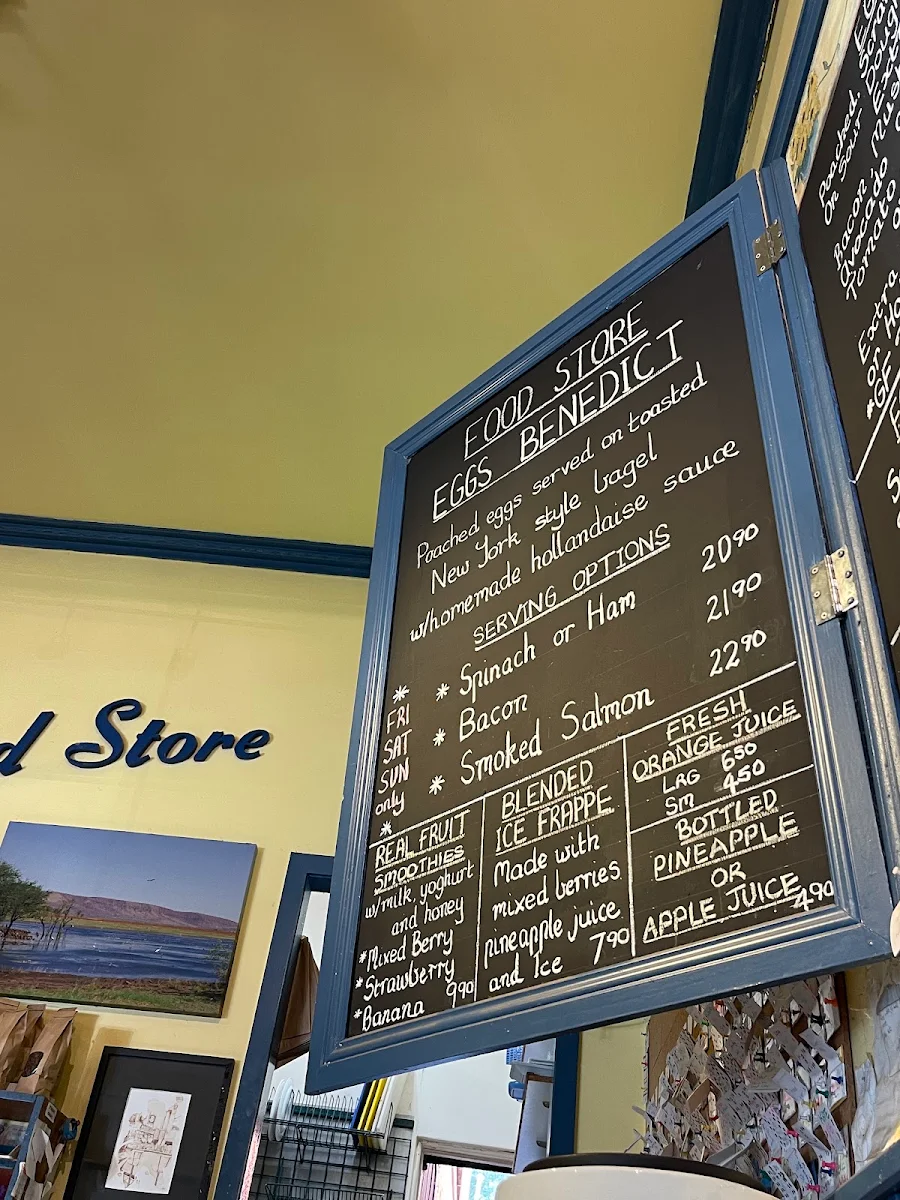 FOOD STORE
EGGS BENEDICT
Poached eggs served on toasted
New York style bagel
w/homemade hollandaise sauce
SERVING OPTIONS
* Spinach or Ham 20 90
* Bacon 21 90
* Smoked Salmon 22 90
*
FRI
SAT
SUN
only
*
REAL FRUIT
SMOOTHIES
w/milk, yoghurt
and honey
*Mixed Berry
*Strawberry
*Banana 9 90
BLENDED
ICE FRAPPE
Made with
mixed berries
pineapple juice
and Ice 7 90
FRESH
ORANGE JUICE
LRG 6 50
Sm 4 50
BOTTLED
PINEAPPLE
OR
APPLE JUICE 4 90
d Store
Poached,
on Sour
Bacon,
avocado
Tomato
Extra
or
*GF